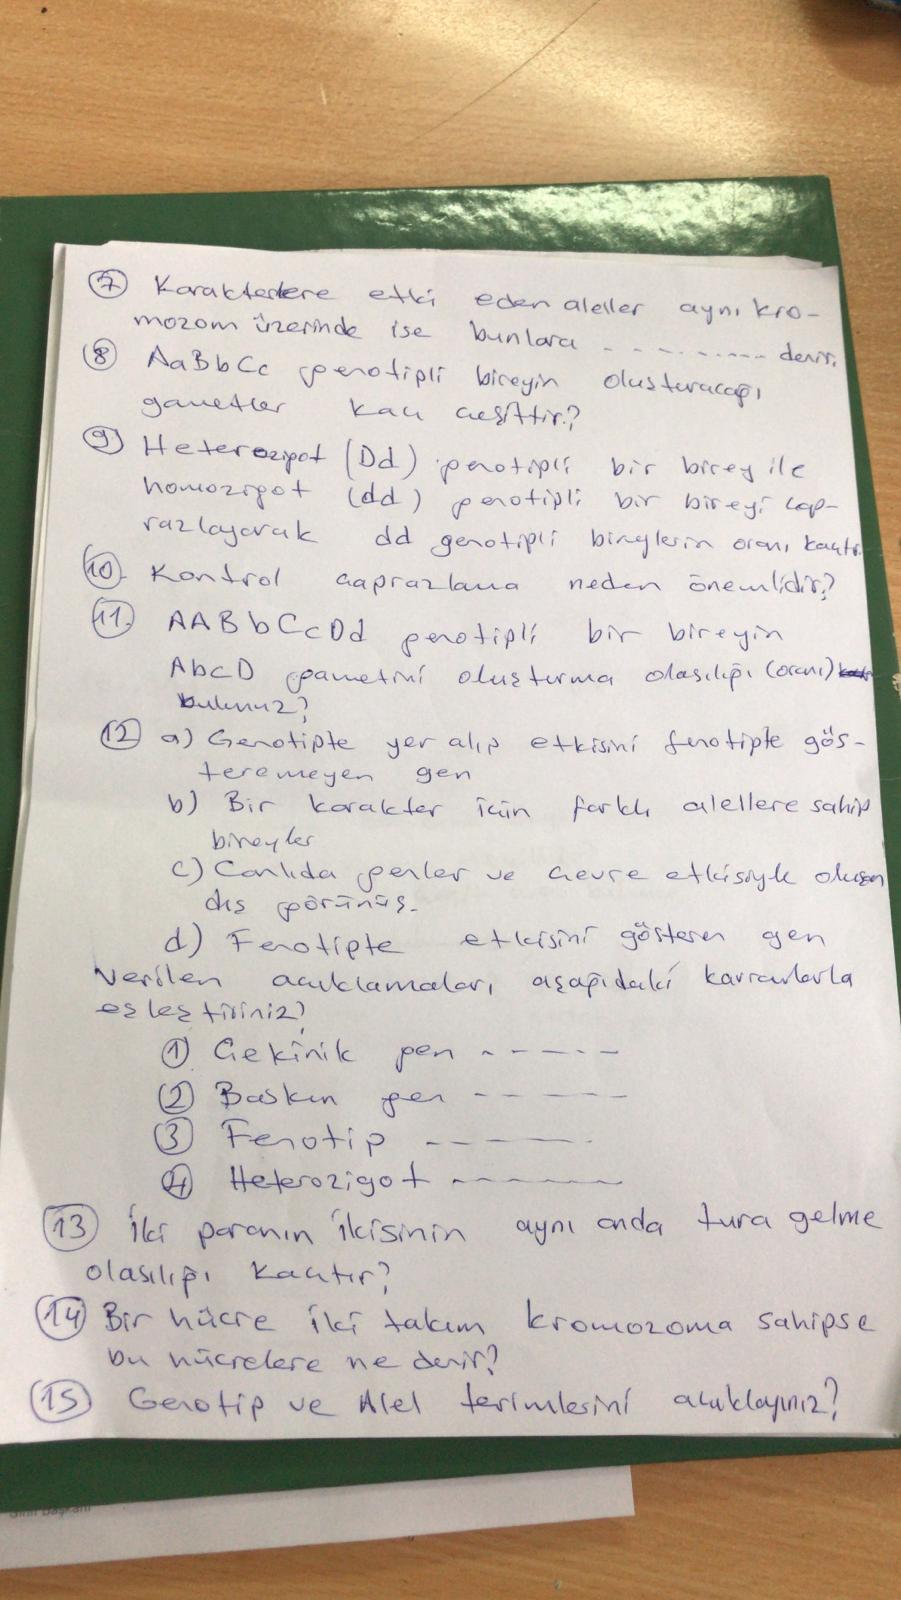 7 Karakterlere etki eden aleller aynı kro-
mozom üzerinde ise bunlara ---------- denir.
8 AaBbCc genotipli bireyin oluşturacağı
gametler kaç çeşittir?
9 Heterozigot (Dd) genotipli bir birey ile
homozigot (dd) genotipli bir bireyi çap-
razlayarak dd genotipli bireylerin oranı kaçtır.
10. Kontrol çaprazlama neden önemlidir?
11. AABbCcDd genotipli bir bireyin
AbcD gametini oluşturma olasılığı (oranı)
bulunuz?
12 a) Genotipte yer alıp etkisini fenotipte gös-
teremeyen gen
b) Bir karakter için farklı alellere sahip
bireyler
c) Canlıda genler ve çevre etkisiyle oluşan
dış görünüş.
d) Fenotipte etkisini gösteren gen
Verilen açıklamaları aşağıdaki kavramlarla
eşleştiriniz?
1 Çekinik gen -----
2 Baskın gen -----
3 Fenotip -----
4 Heterozigot -----
13 İki paranın ikisinin aynı anda tura gelme
olasılığı kaçtır?
14 Bir hücre iki takım kromozoma sahipse
bu hücrelere ne denir?
15 Genotip ve Alel terimlerini açıklayınız?